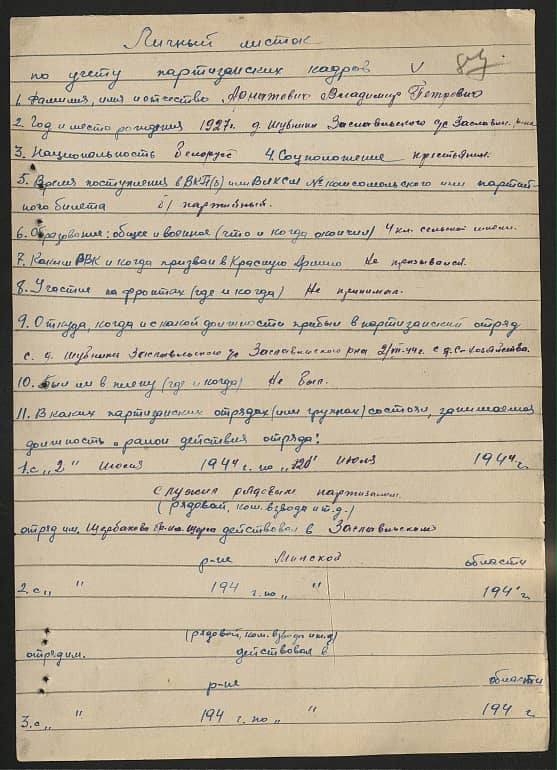 Личный листок
по учету партизанских кадров V
1. Фамилия, имя и отчество Владимир Петрович
2. Год и место рождения 1927г. д. Шубники Заславльского
3. Национальность белорусс 4. Соцположение крестьянин.
5. Время поступления в ВКП(б) или ВЛКСМ № комсомольского или партий-
ного билета б/партийный.
6. Образование: общее и военное (что и когда окончил) 4 кл. сельской
7. Каким РВК и когда призван в Красную Армию Не призывался.
8. Участие на фронтах (где и когда) Не принимал.
9. Откуда, когда и с какой должности прибыл в партизанский отряд
с д. Шубники Заславльского Заславльского р-на с д. С-хозяйства.
10. Был ли в плену (где и когда) Не был.
11. В каких партизанских отрядах (или группах) состоял, занимаемая
должность и район действия отряда:
1. с „2" 1944 г. по „20" июля 1944 г.
Служил рядовым партизаном.
(рядовой, ком. взвода и т.д.)
отряд им. Щербакова действовал в Заславльском
р-не Минской области
2. с „ " 194 г. по „ " 194 г.
(рядовой, ком. взвода и т.д)
отряд им. действовал в
р-не области
3. с „ " 194 г. по „ " 194 г.